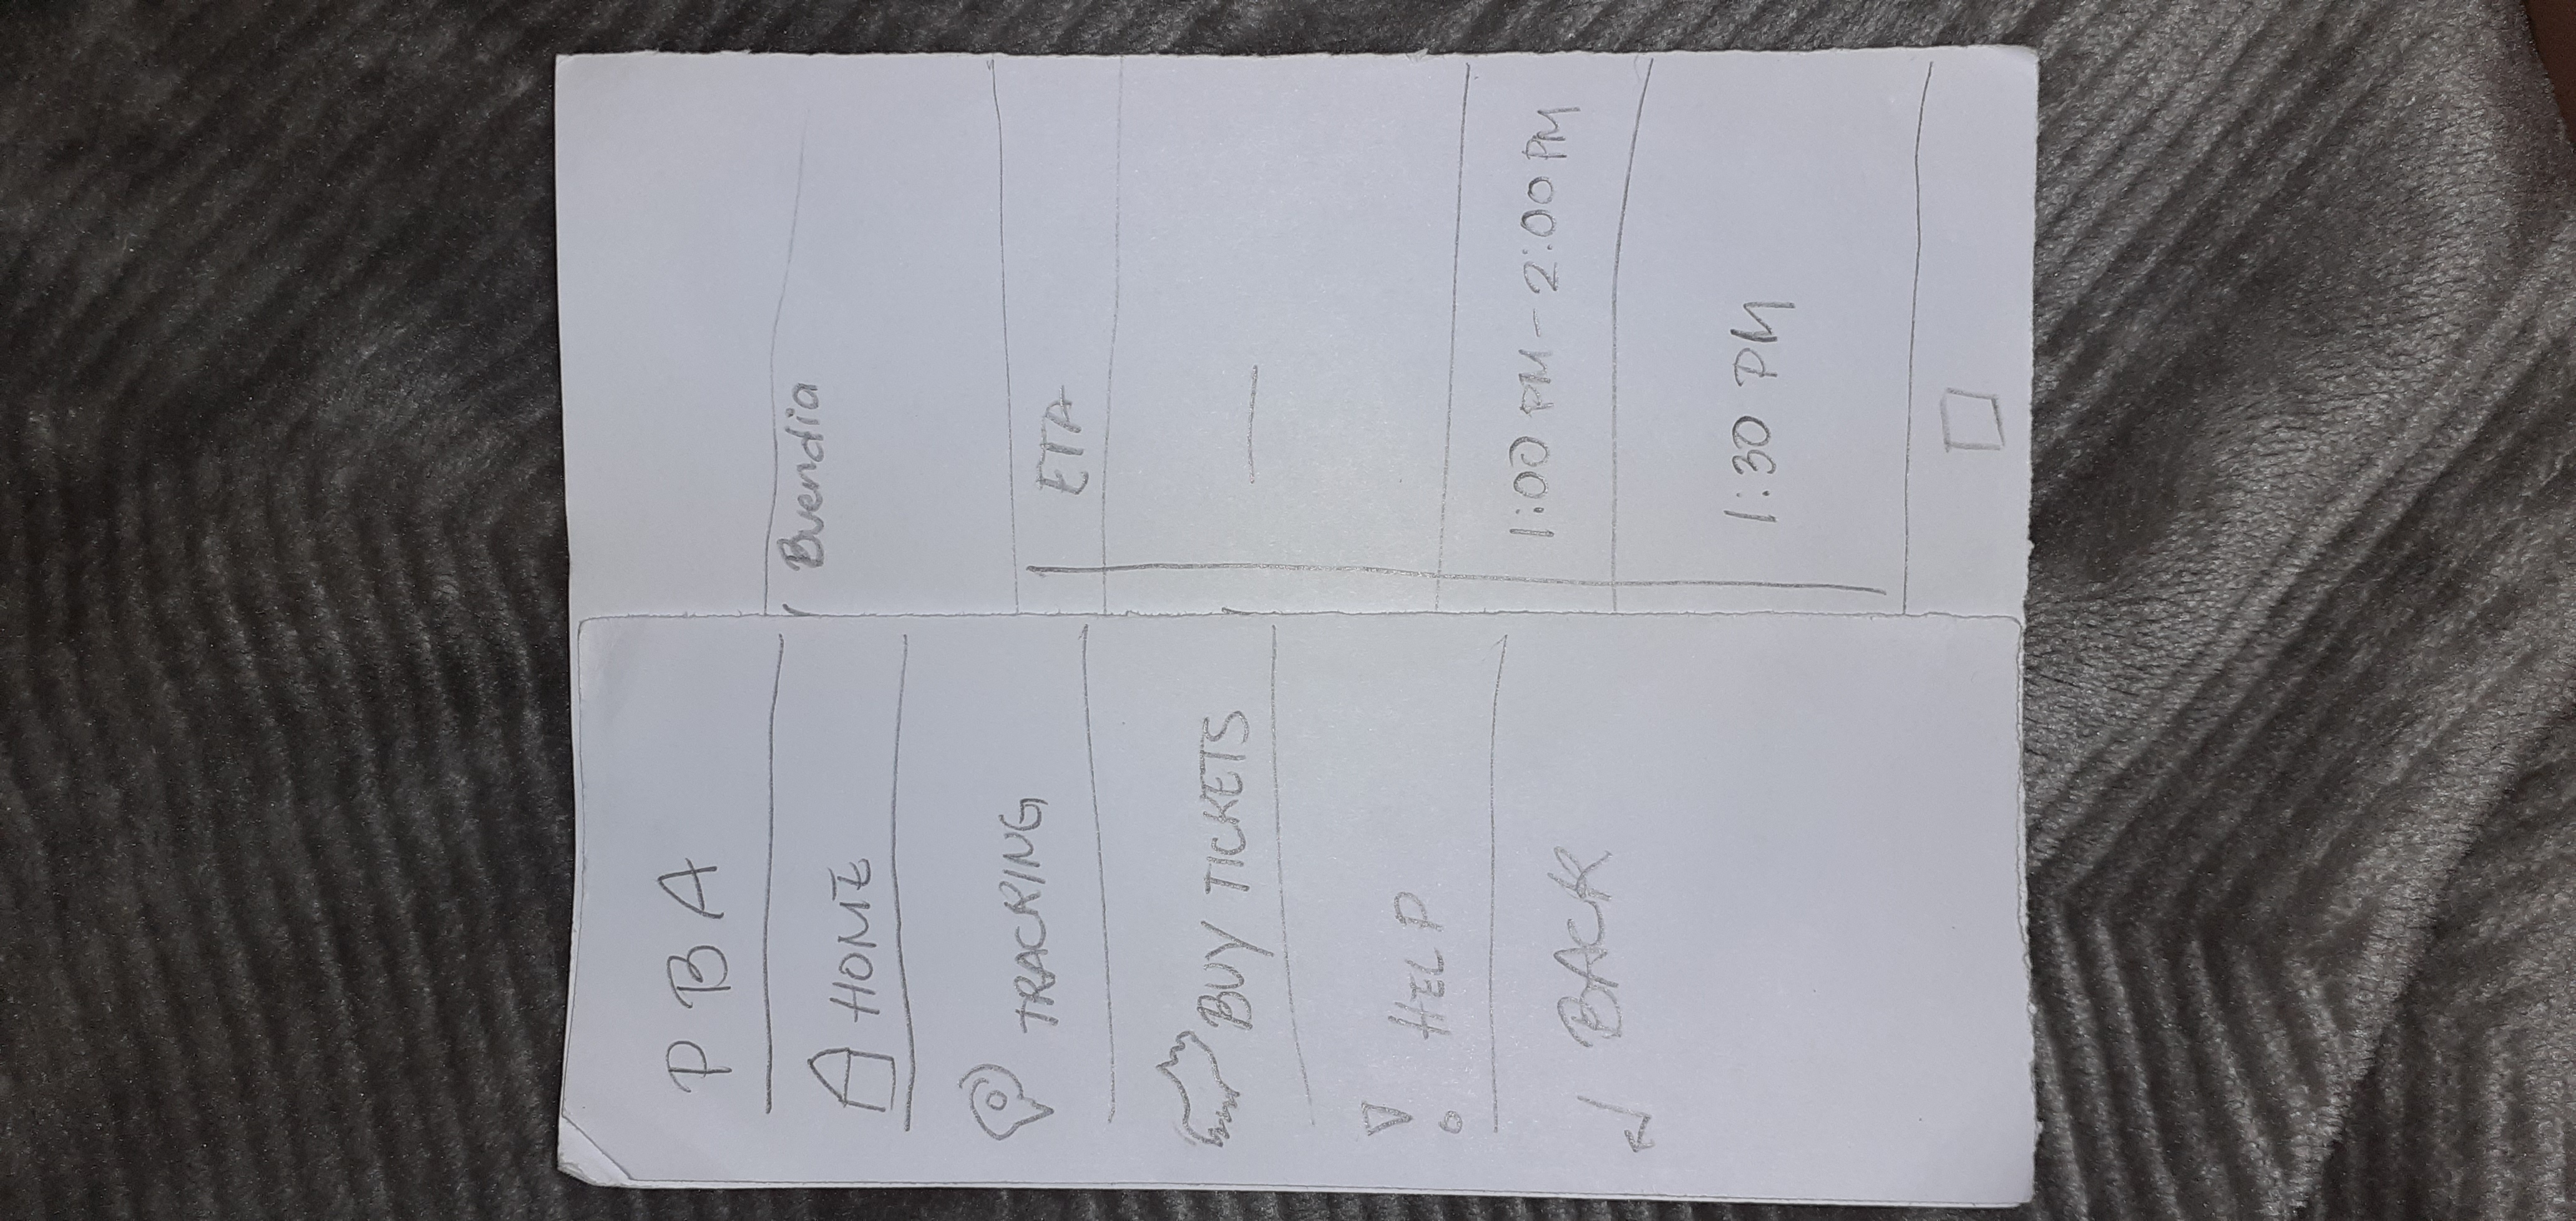 PBA
HOME
TRACKING
BUY TICKETS
HELP
BACK
Buendia
ETA
1:00 PM - 2:00 PM
1:30 PM